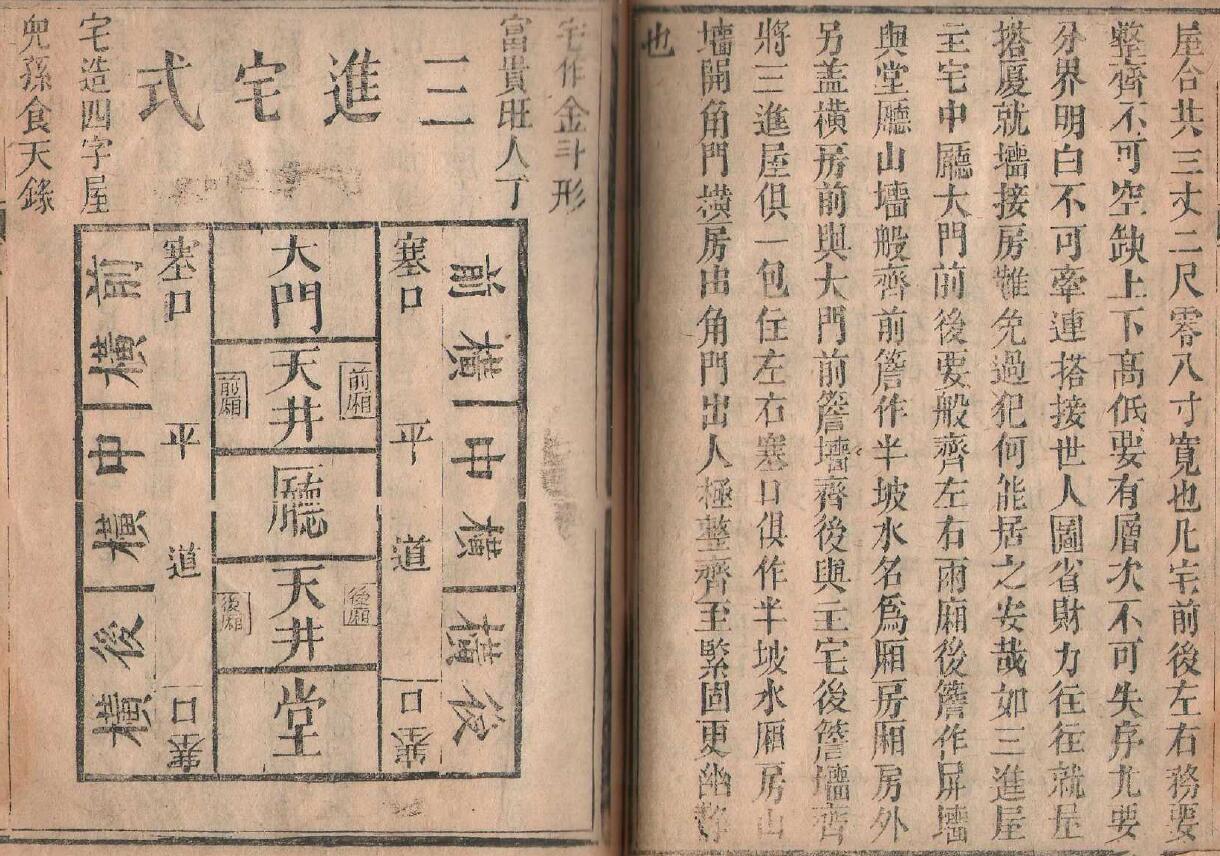 屋合共三丈二尺零八寸寬也凢宅前後左右務要
整齊不可空缺上下高低要有層次不可失序尤要
分界明白不可牽連搭接世人圖省財力往往就屋
搭厦就墻接房雖免過犯何能居之安哉如三進屋
主宅中廳大門前後要般齊左右兩廂後簷作屏墻
與堂廳山墻般齊前簷作半坡水名爲厢房厢房外
另盖橫房前與大門前簷墻齊後與主宅後簷墻齊
將三進屋俱一包住左右塞口俱作半坡水厢房山
墻開角門橫房由角門出人極整齊至緊固更幽静
也
宅作金斗形
富貴旺人丁
三進宅式
宅造四字屋
兒孫食天祿
前橫
中橫
後橫
塞口
平道
塞口
大門
天井
前廂
前廂
廳
天井
後廂
後廂
堂
塞口
平道
塞口
前橫
中橫
後橫